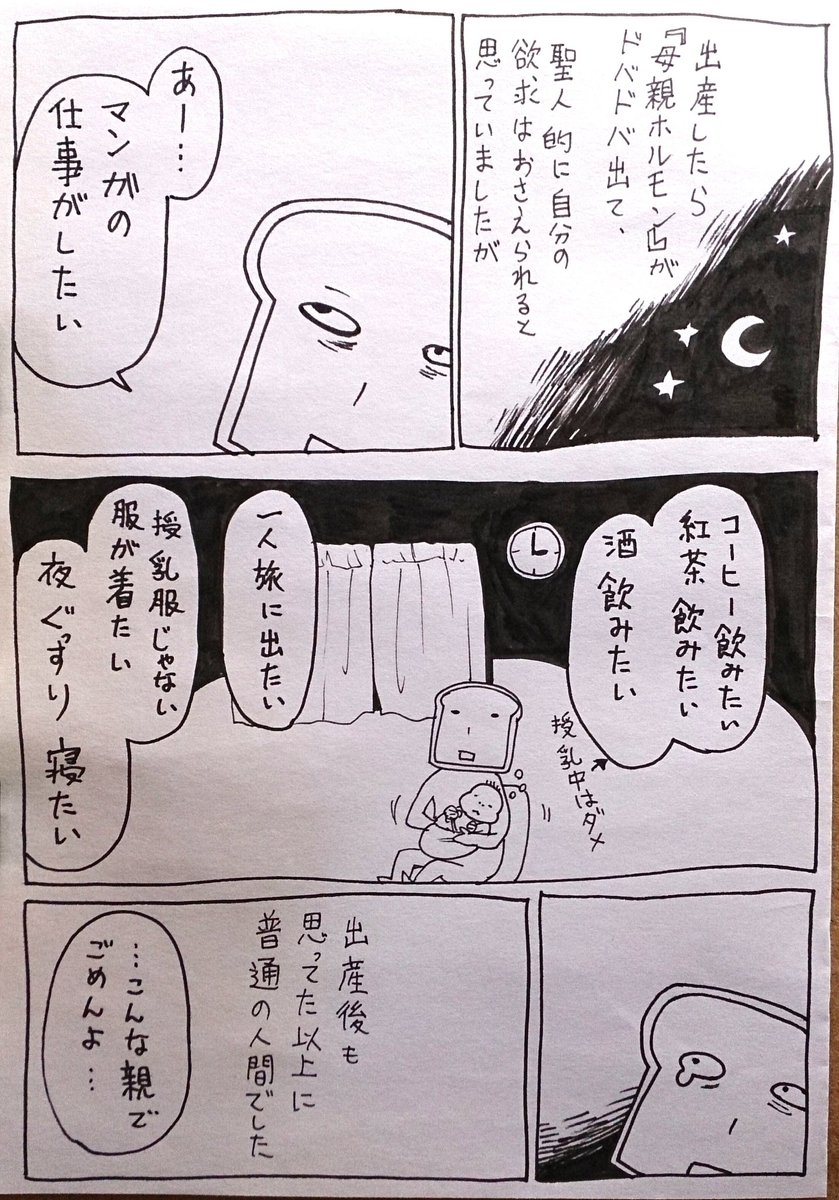 出産したら
『母親ホルモン』が
ドバドバ出て、
聖人的に自分の
欲求はおさえられると
思っていましたが
あー…
マンガの
仕事がしたい
コーヒー飲みたい
紅茶飲みたい
酒飲みたい
授乳中はダメ
一人旅に出たい
授乳服じゃない
服が着たい
夜ぐっすり寝たい
出産後も
思ってた以上に
普通の人間でした
…こんな親で
ごめんよ…